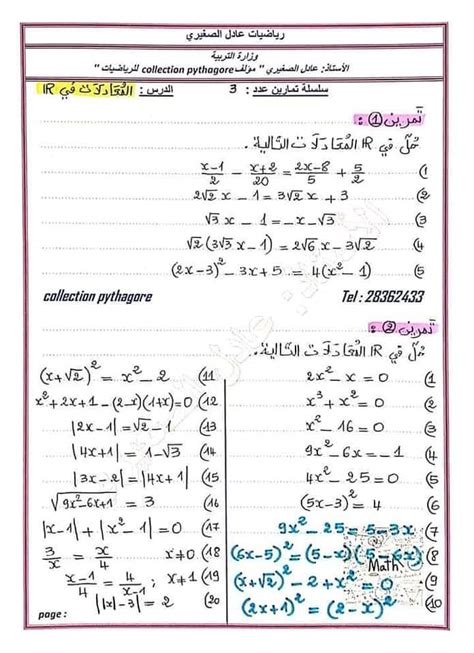 رياضيات عادل الصغيري
وزارة التربية
الأستاذ: عادل الصغيري " مؤلف collection pythagore للرياضيات "
سلسلة تمارين عدد : 3 الدرس : المُعَادلات في IR
تمرين ① :
حُلّ في IR المُعَادَلَات التالية.
1) (x-1)/2 - (x+2)/20 = (2x-8)/5 + 5/2
2) 2√2 x - 1 = 3√2 x + 3
3) √3 x - 1 = -x - √3
4) √2 (3√3 x - 1) = 2√6 x - 3√2
5) (2x-3)² - 3x + 5 = 4(x² - 1)
collection pythagore Tel : 28362433
تمرين ② :
حُلّ في IR المُعَادَلَات التالية.
1) 2x² - x = 0
2) x³ + x² = 0
3) x² - 16 = 0
4) 9x² - 6x = -1
5) 4x² - 25 = 0
6) (5x-3)² = 4
7) 9x² - 25 = 5 - 3x
8) (6x-5)² = (5-x)(5-6x)
9) (x+√2)² - 2 + x² = 0
10) (2x+1)² = (2-x)²
11) (x+√2)² = x² - 2
12) x² + 2x + 1 - (2-x)(1+x) = 0
13) |2x-1| = √2 - 1
14) |4x+1| = 1-√3
15) |3x-2| = |4x+1|
16) √(9x²-6x+1) = 3
17) |x-1| + |x²-1| = 0
18) 3/x = x/4 x≠0
19) (x-1)/4 = 4/(x-1) ; x≠1
20) ||x|-3| = 2
Math
page :